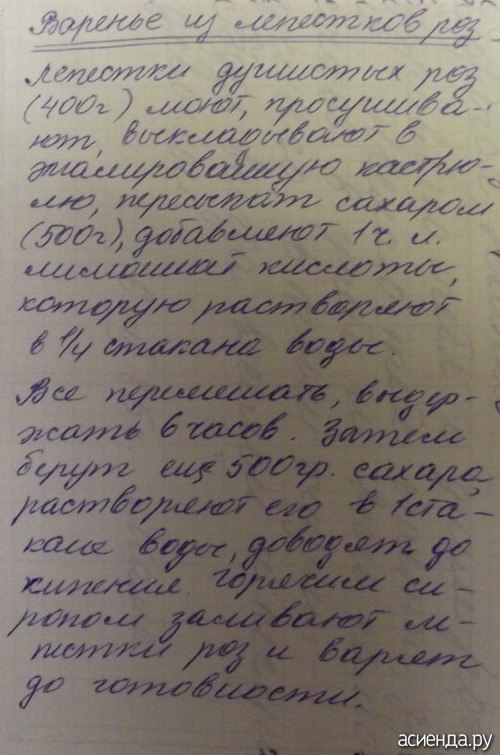 Варенье из лепестков роз
Лепестки душистых роз
(400г) моют, просушива-
ют, выкладывают в
эмалированную кастрю-
лю, пересыпат сахаром
(500г), добавляют 1 ч. л.
лимонной кислоты,
которую растворяют
в 1/4 стакана воды.
Все перемешать, выдер-
жать 6 часов. Затем
берут еще 500гр. сахара,
растворяют его в 1 ста-
кане воды, доводят до
кипения. Горячим си-
ропом заливают ле-
пестки роз и варят
до готовности.
асиенда.ру